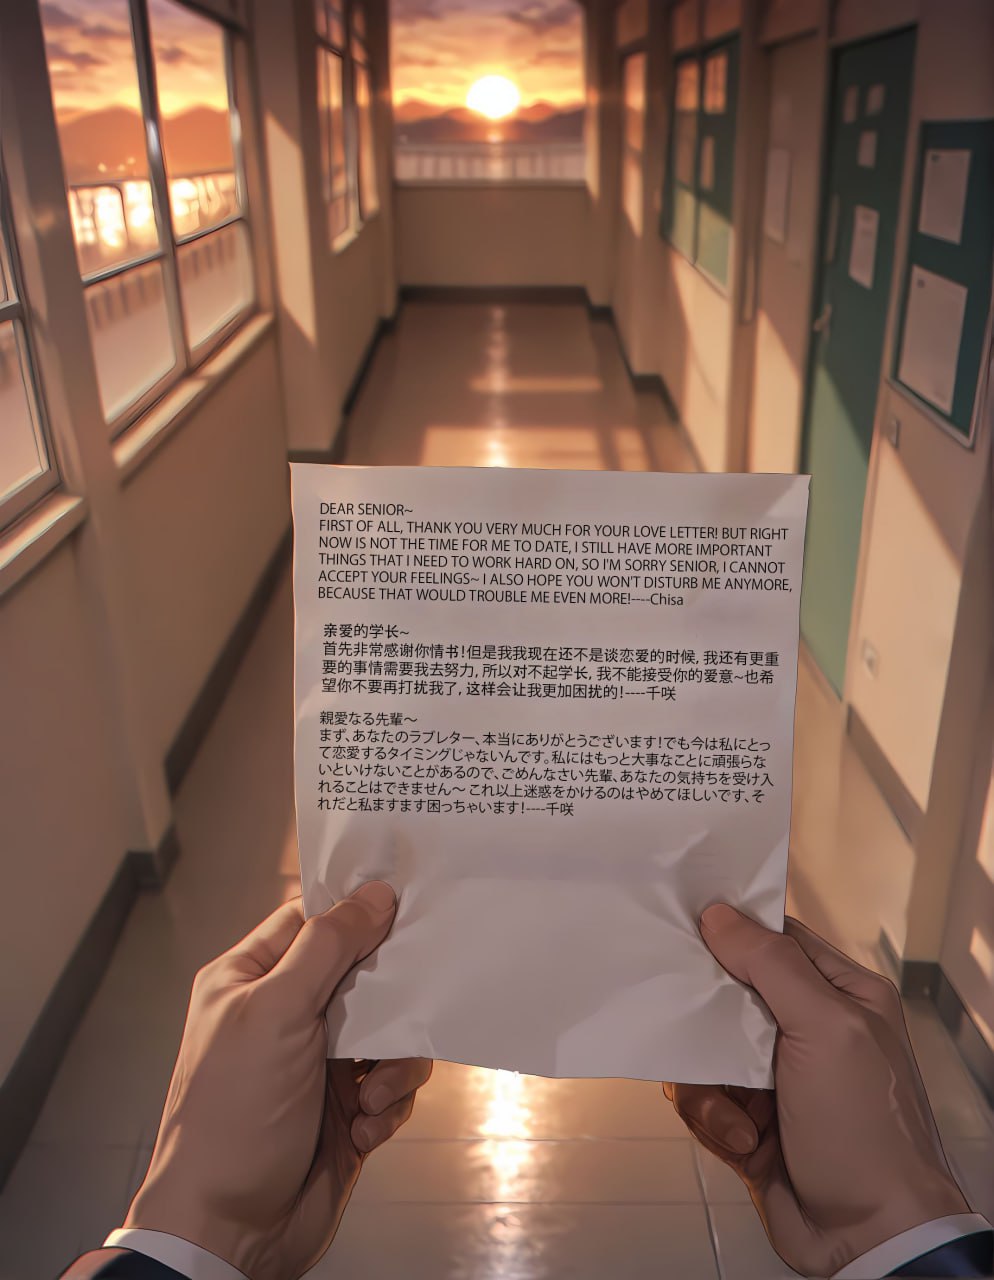 DEAR SENIOR~
FIRST OF ALL, THANK YOU VERY MUCH FOR YOUR LOVE LETTER! BUT RIGHT
NOW IS NOT THE TIME FOR ME TO DATE, I STILL HAVE MORE IMPORTANT
THINGS THAT I NEED TO WORK HARD ON, SO I'M SORRY SENIOR, I CANNOT
ACCEPT YOUR FEELINGS~ I ALSO HOPE YOU WON'T DISTURB ME ANYMORE,
BECAUSE THAT WOULD TROUBLE ME EVEN MORE!----Chisa
亲爱的学长~
首先非常感谢你情书!但是我我现在还不是谈恋爱的时候, 我还有更重
要的事情需要我去努力, 所以对不起学长, 我不能接受你的爱意~也希
望你不要再打扰我了, 这样会让我更加困扰的!----千咲
親愛なる先輩～
まず、あなたのラブレター、本当にありがとうございます!でも今は私にとっ
て恋愛するタイミングじゃないんです。私にはもっと大事なことに頑張らな
いといけないことがあるので、ごめんなさい先輩、あなたの気持ちを受け入
れることはできません～ これ以上迷惑をかけるのはやめてほしいです、そ
れだと私ますます困っちゃいます!----千咲